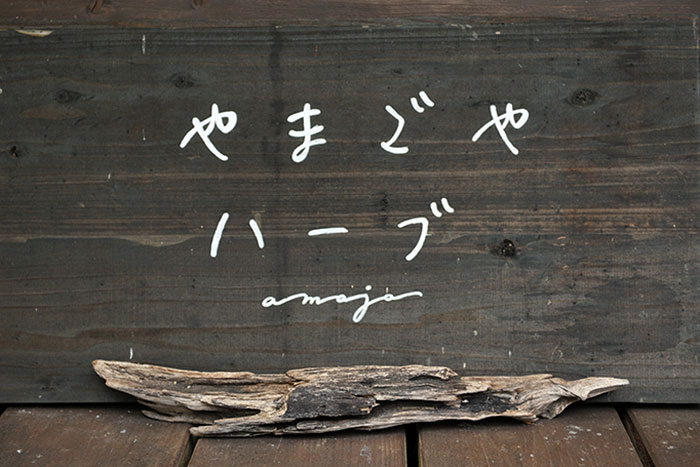 やまごや
ハーブ
amajo